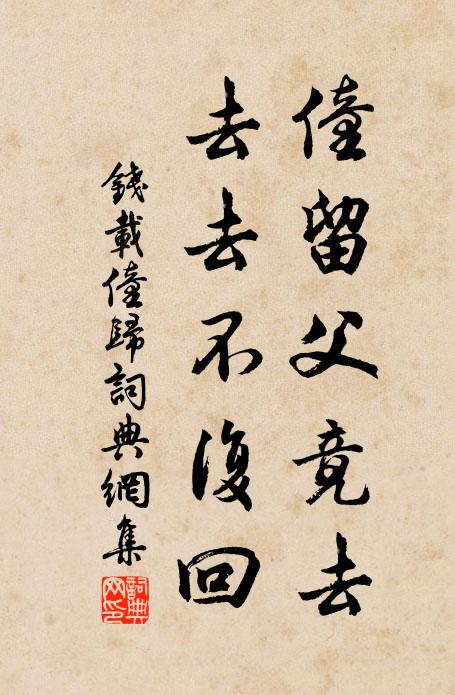 僮留父竟去
去去不復回
錢載僮歸詞典網集
詞典
网印